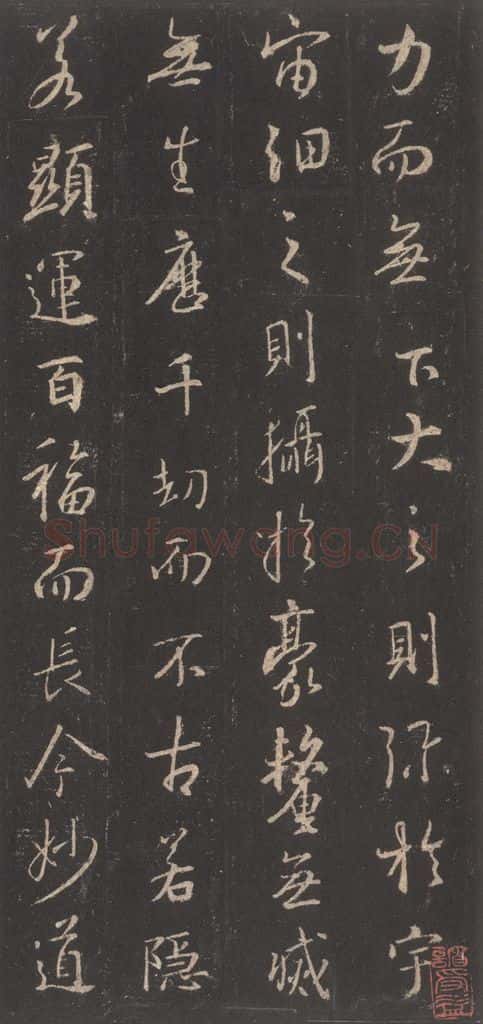 力而無下大之則弥於宇
宙細之則攝於豪釐無滅
無生歷千劫而不古若隱
若顯運百福而長今妙道
Shufawang.CN